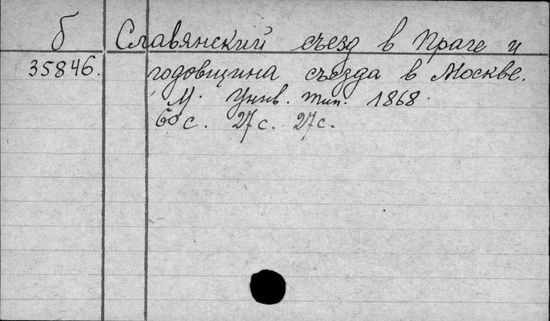 б Славянский съезд в Праге и
35846. годовщина съезда в Москве.
М. Унив. тип. 1868.
60 с. 27 с. 27 с.